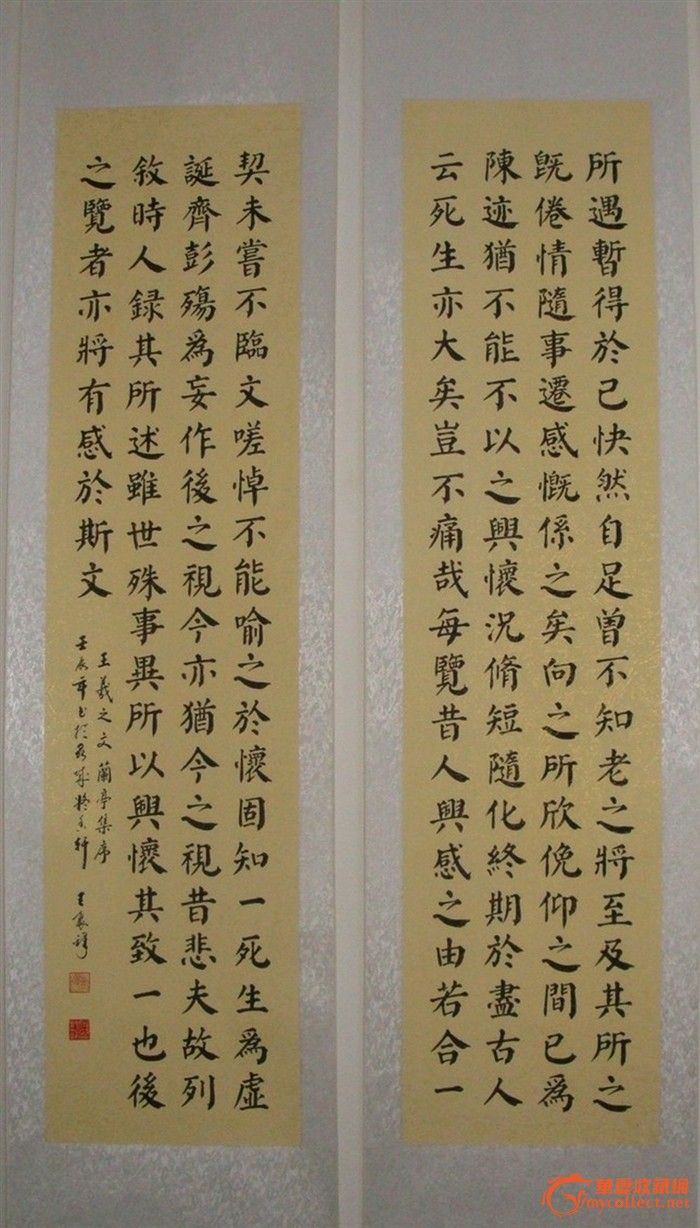 所遇暫得於己快然自足曾不知老之將至及其所之
旣倦情隨事遷感慨係之矣向之所欣俛仰之間已爲
陳迹猶不能不以之興懷況脩短隨化終期於盡古人
云死生亦大矣豈不痛哉每覽昔人興感之由若合一
契未嘗不臨文嗟悼不能喻之於懷固知一死生爲虛
誕齊彭殤爲妄作後之視今亦猶今之視昔悲夫故列
敘時人録其所述雖世殊事異所以興懷其致一也後
之覽者亦將有感於斯文
王羲之文蘭亭集序
壬辰年書於軒 王
華夏收藏網
mycollect.net